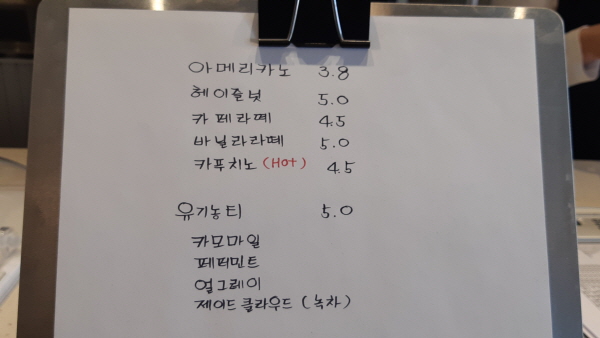 아메리카노 3.8
헤이즐넛 5.0
카페라떼 4.5
바닐라라떼 5.0
카푸치노 (Hot) 4.5
유기농티 5.0
카모마일
페퍼민트
얼그레이
제이드 클라우드 (녹차)